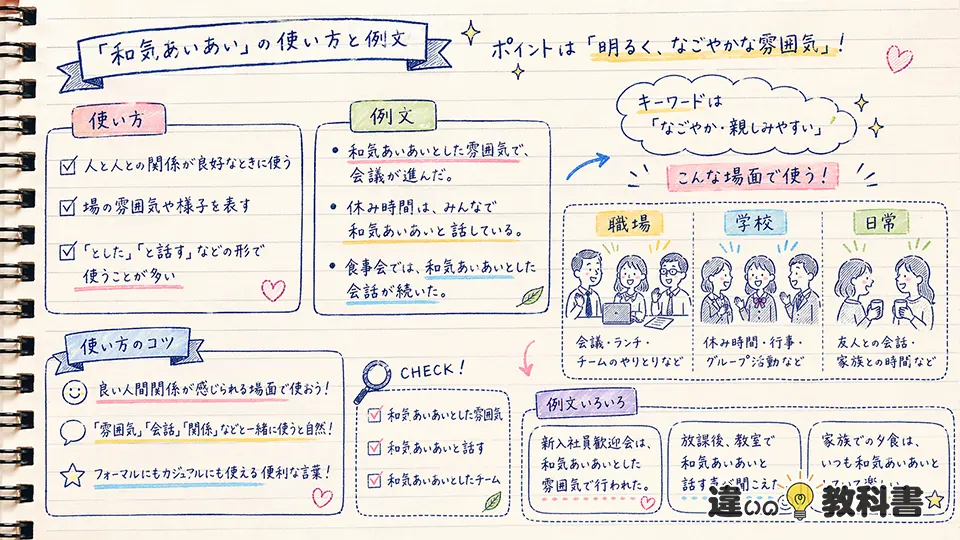 「和気あいあい」の使い方と例文
ポイントは「明るく、なごやかな雰囲気」!
使い方
人と人との関係が良好なときに使う
場の雰囲気や様子を表す
「とした」「と話す」などの形で
使うことが多い
例文
和気あいあいとした雰囲気で、
会議が進んだ。
休み時間は、みんなで
和気あいあいと話している。
食事会では、和気あいあいとした
会話が続いた。
キーワードは
「なごやか・親しみやすい」
こんな場面で使う!
職場
会議・ランチ・
チームのやりとりなど
学校
休み時間・行事・
グループ活動など
日常
友人との会話・
家族との時間など
使い方のコツ
良い人間関係が感じられる場面で使おう!
「雰囲気」「会話」「関係」などと一緒に使うと自然!
フォーマルにもカジュアルにも使える便利な言葉!
CHECK!
和気あいあいとした雰囲気
和気あいあいと話す
和気あいあいとしたチーム
例文いろいろ
新入社員歓迎会は、
和気あいあいとした
雰囲気で行われた。
放課後、教室で
和気あいあいと
話す声が聞こえた
家族での夕食は、
いつも和気あいあいと
楽しい
違いの教科書